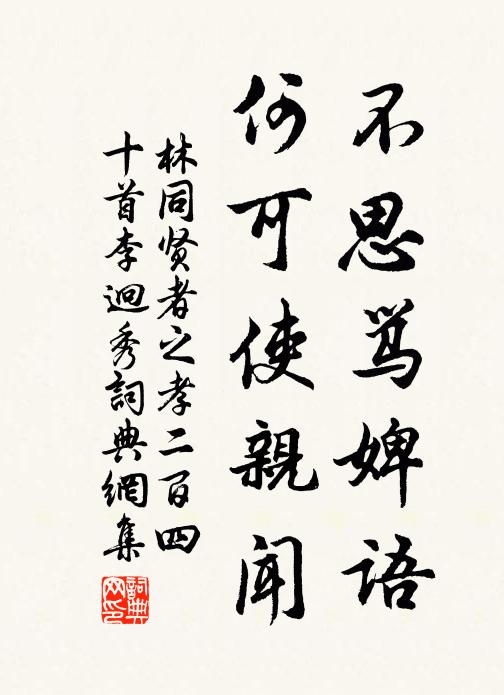 不思骂婢语
何可使親闻
林同贤者之孝二百四
十首李迥秀詞典網集
詞典